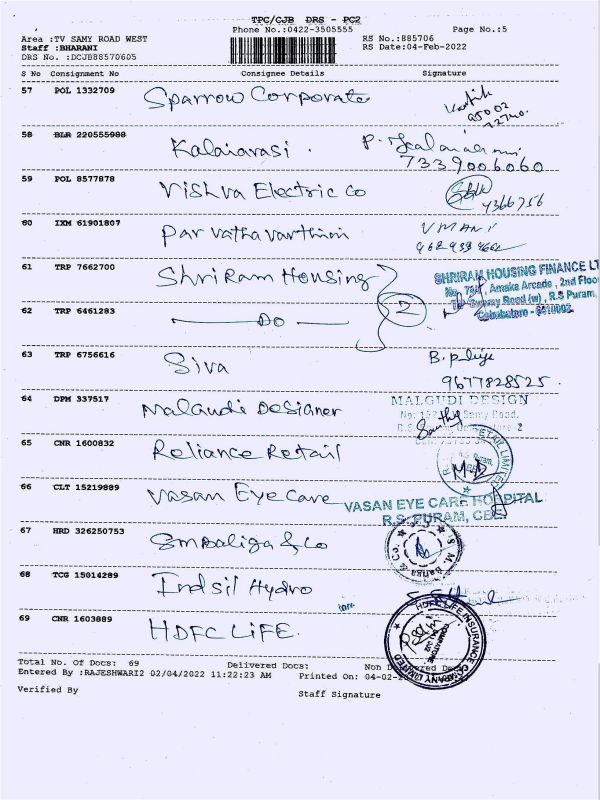 TPC/CJB DRS - PC2
Phone No.:0422-3505555 Page No.:5
Area :TV SAMY ROAD WEST RS No.:885706
Staff :BHARANI RS Date:04-Feb-2022
DRS No. :DCJB88570605
S No Consignment No Consignee Details Signature
57 POL 1332709 Sparrow Corporate
58 BLR 220555988 Kalaiarasi . P.
7339006060
59 POL 8577878 Vishva Electric Co
4366756
60 IXM 61901807 Parvathavarthini V MANI
61 TRP 7662700 ShriRam Housing SHRIRAM HOUSING FINANCE LT
Amaka Arcade, 2nd Floo
Road (w), R.S Puram,
62 TRP 6461283 Do 2
63 TRP 6756616 Siva B.
9677828525.
64 DPM 337517 Malgudi Designer MALGUDI DESIGN
Samy Road.
65 CNR 1600832 Reliance Retail
66 CLT 15219889 Vasan Eye Care VASAN EYE CARE HOSPITAL
R.S. PURAM, CBE.
67 HRD 326250753 SM Baliga & Co
68 TCG 15014289 Indsil Hydro
69 CNR 1603889 HDFC LIFE. HDFC LIFE INSURANCE COMPANY LIMITED
Total No. Of Docs: 69 Delivered Docs: Non Delivered Docs:
Entered By :RAJESHWARI2 02/04/2022 11:22:23 AM Printed On: 04-02-2
Verified By Staff Signature